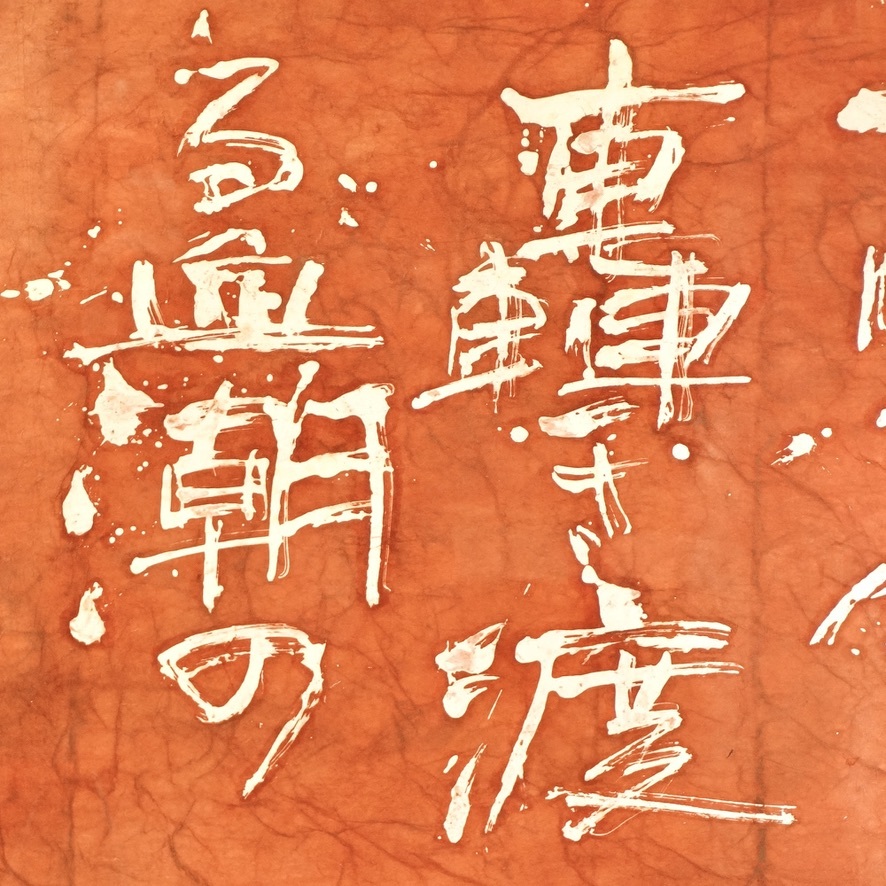 轟き渡
る血潮の